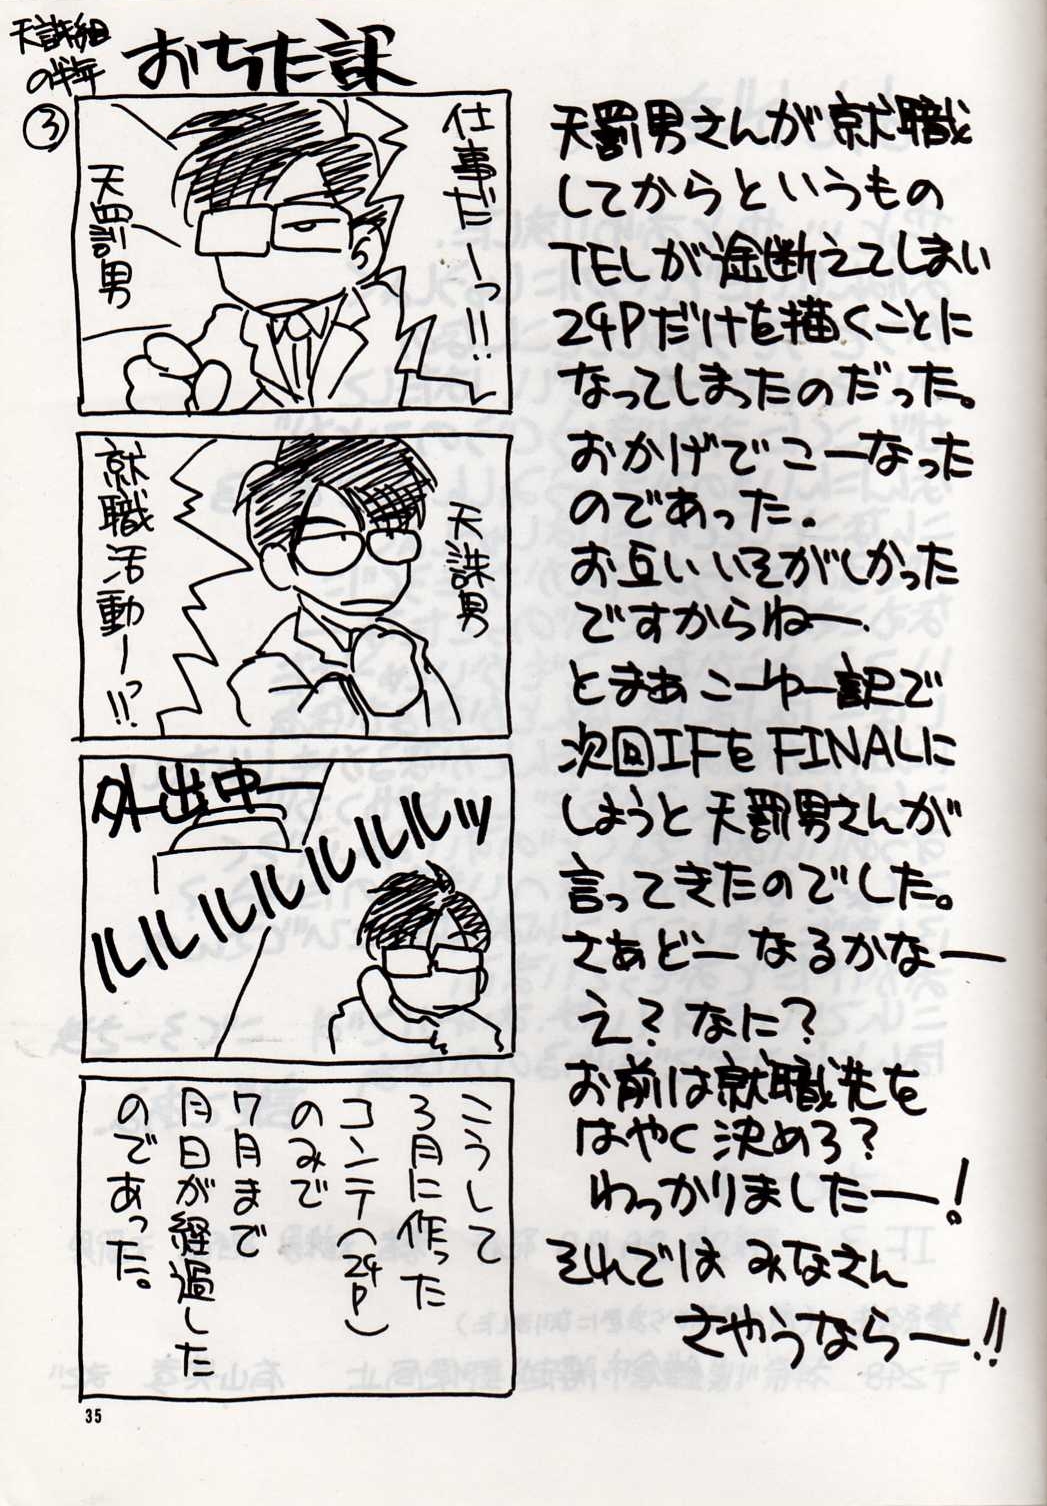 天誅組
の半年
おちた記
③
仕事だーっ!!
天罰男
天誅男
就職活動ーっ!!
外出中ー
ルルルルルルルルッ
こうして
3月に作った
コンテ(24P)
のみで
7月まで
月日が経過した
のであった。
天罰男さんが就職
してからというもの
TELが途断えてしまい
24Pだけを描くことに
なってしまったのだった。
おかげでこーなった
のであった。
お互いいそがしかった
ですからねー.
とまあこーゆー訳で
次回IFをFINALに
しようと天罰男さんが
言ってきたのでした。
さあどーなるかなー
え?なに?
お前は就職先を
はやく決めろ?
わっかりましたーー!
それではみなさん
さやうならー!!
35